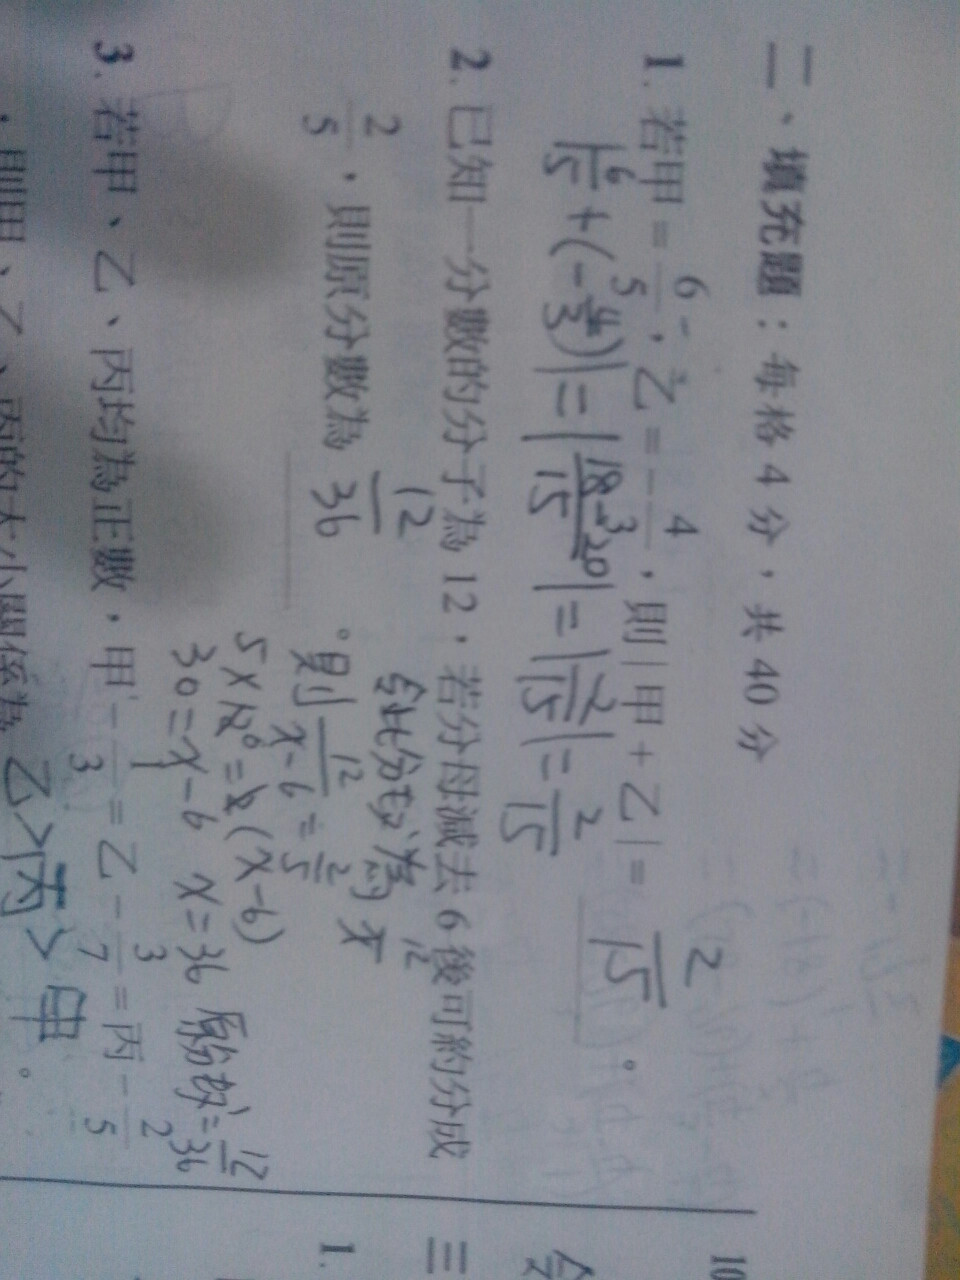 二、填充題：每格4分，共40分
1. 若甲=6/5，乙=-4/3，則|甲+乙|= 2/15 。
|6/5+(-4/3)|=|18-20/15|=|2/15|=2/15
2. 已知一分數的分子為12，若分母減去6後可約分成
2/5，則原分數為 12/36 。
令此分數為 12/x
則 12/x-6=2/5
5×12 6=2(x-6)
30=x-6 x=36 原分數=12/36
3. 若甲、乙、丙均為正數，甲-1/3=乙-3/7=丙-2/5
，則甲、乙、丙的大小關係為 乙>丙>甲 。
10
三
1.